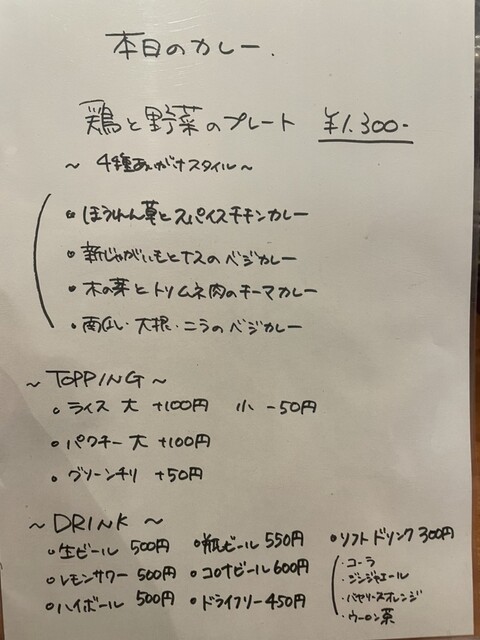 本日のカレー.
鶏と野菜のプレート ¥1.300-
～4種あいがけスタイル～
・ほうれん草とスパイスチキンカレー
・新じゃがいもとナスのベジカレー
・木の芽とトリムネ肉のキーマカレー
・南瓜・大根・ニラのベジカレー
～TOPPING～
・ライス 大 +100円 小 -50円
・パクチー 大 +100円
・グリーンチリ +50円
～DRINK～
・生ビール 500円 ・瓶ビール 550円 ・ソフトドリンク 300円
・レモンサワー 500円 ・コロナビール 600円 ・コーラ
・ジンジャエール
・ハイボール 500円 ・ドライフリー 450円 ・バヤリースオレンジ
・ウーロン茶